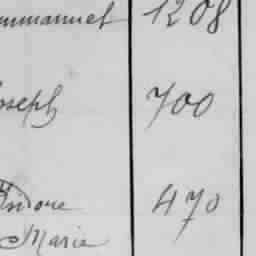 mmanuel 1208
oseph 700
470
Marie